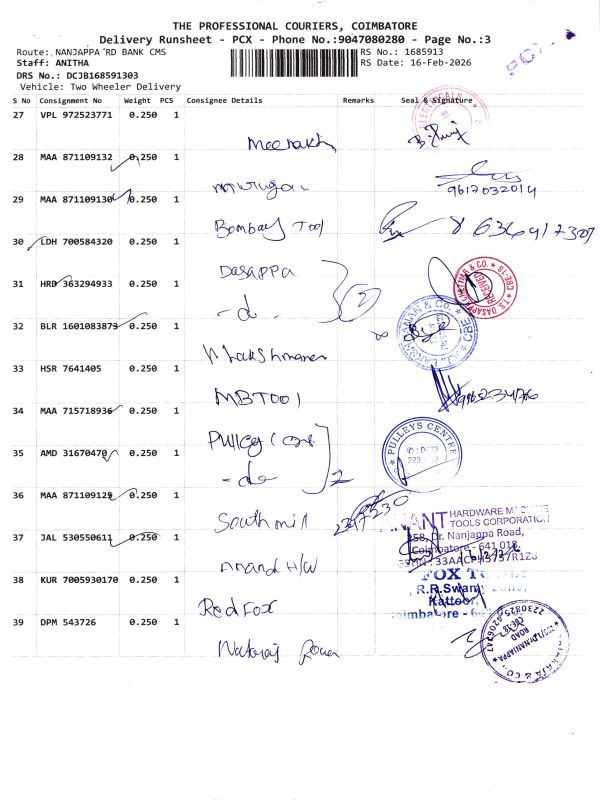 THE PROFESSIONAL COURIERS, COIMBATORE
Delivery Runsheet - PCX - Phone No.:9047080280 - Page No.:3
Route: NANJAPPA RD BANK CMS
RS No.: 1685913
Staff: ANITHA
RS Date: 16-Feb-2026
DRS No.: DCJB168591303
Vehicle: Two Wheeler Delivery
S No Consignment No Weight PCS Consignee Details Remarks Seal & Signature
27 VPL 972523771 0.250 1
Meenakshi
28 MAA 871109132 0.250 1
Murugan
9617032014
29 MAA 871109130 0.250 1
Bombay Tool
8636917307
30 LDH 700584320 0.250 1
Dasappa
31 HRD 363294933 0.250 1
- d. 2
RECEIVED
32 BLR 1601083873 0.250 1
N Lakshmanan
33 HSR 7641405 0.250 1
MBTool
34 MAA 715718936 0.250 1
Pulley Cent
PULLEYS CENTRE
35 AMD 31670470 0.250 1
- do 2
36 MAA 871109125 0.250 1
South mill
2397230
HARDWARE
TOOLS CORPORATION
258, Dr. Nanjappa Road,
Coimbatore - 641 018
37 JAL 530550611 0.250 1
Anand H/W
38 KUR 7005930170 0.250 1
FOX
R.R.Swamy
Kattoor,
Coimbatore -
Red Fox
39 DPM 543726 0.250 1
Nataraj